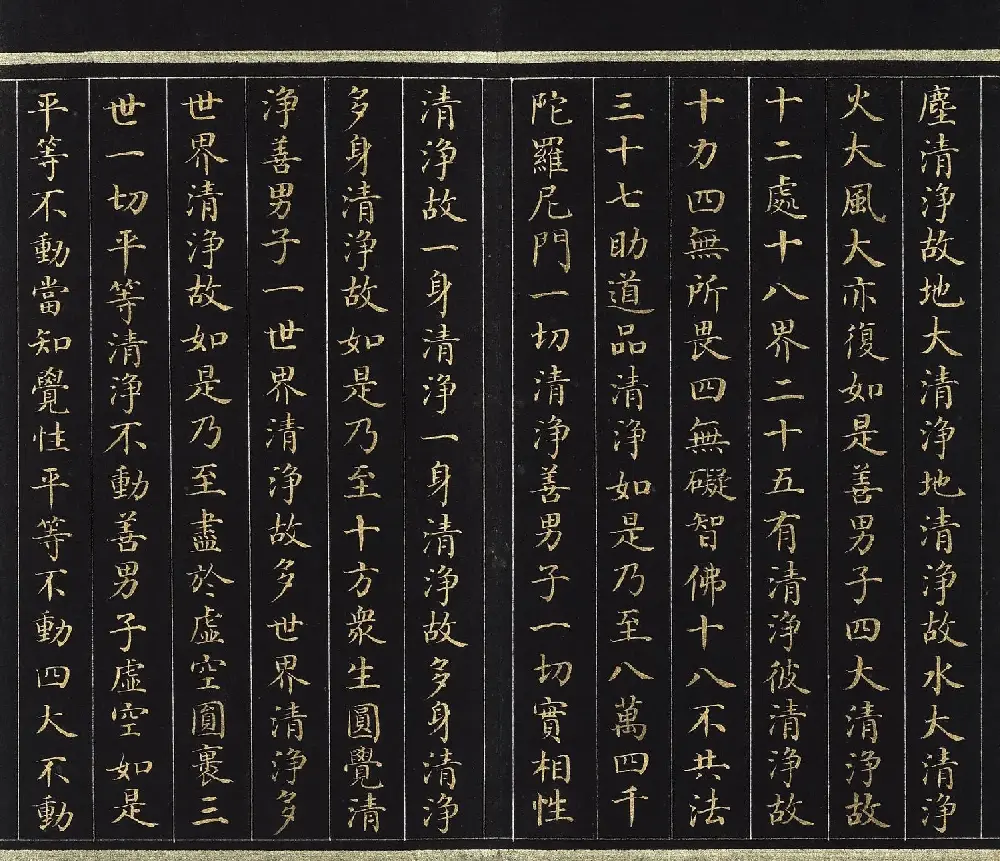 塵清淨故地大清淨地清淨故水大清淨
火大風大亦復如是善男子四大清淨故
十二處十八界二十五有清淨彼清淨故
十力四無所畏四無礙智佛十八不共法
三十七助道品清淨如是乃至八萬四千
陀羅尼門一切清淨善男子一切實相性
清淨故一身清淨一身清淨故多身清淨
多身清淨故如是乃至十方衆生圓覺清
淨善男子一世界清淨故多世界清淨多
世界清淨故如是乃至盡於虛空圓裹三
世一切平等清淨不動善男子虛空如是
平等不動當知覺性平等不動四大不動